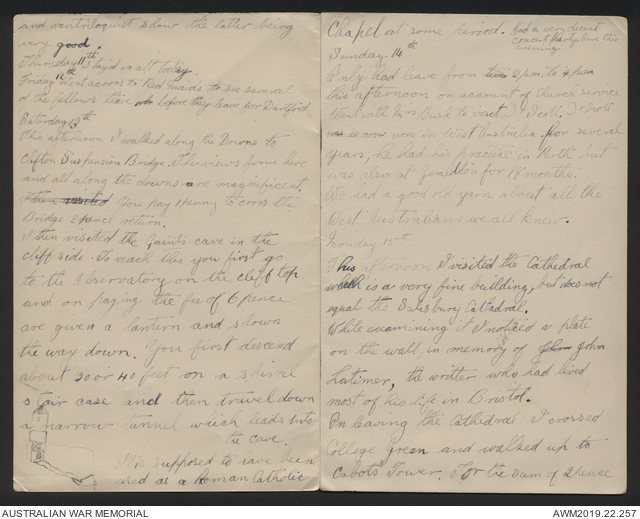 and ventriloquist show the latter being
very good.
Thursday 11th Stayed in all today.
Friday 12th Went across to Red Maids to see several
of the fellows there before they leave for Dartford
Saturday 13th
This afternoon I walked along the Downs to
Clifton Suspension Bridge. The views from here
and all along the downs are magnificent.
I then visited You pay 1 penny to cross the
Bridge 2 pence return.
I then visited the Giants cave in the
cliff side. To reach this you first go
to the Observatory on the cliff top
and on paying the fee of 6 pence
are given a lantern and shown
the way down. You first descend
about 30 or 40 feet on a spiral
stair case and then travel down
a narrow tunnel which leads into
the cave.
It is supposed to have been
used as a Roman Catholic
Chapel at some period. Had a very decent
concert party here this
evening
Sunday 14th
Only had leave from 2 pm. to 4 pm
this afternoon on account of Church service
Went with Mrs Bush to visit Scott. Scott
was in West Australia for several
years, he had his practice in Perth but
was also at Geraldton for 18 months.
We had a good old yarn about all the
West Australians we all knew.
Monday 15th
This afternoon I visited the Cathedral
which is a very fine building, but does not
equal the Salisbury Cathedral.
While examining it I noticed a plate
on the wall in memory of John John
Latimer, the writer who had lived
most of his life in Bristol.
On leaving the Cathedral I crossed
College Green and walked up to
Cabots Tower. For the sum of 2 pence
AUSTRALIAN WAR MEMORIAL
AWM2019.22.257